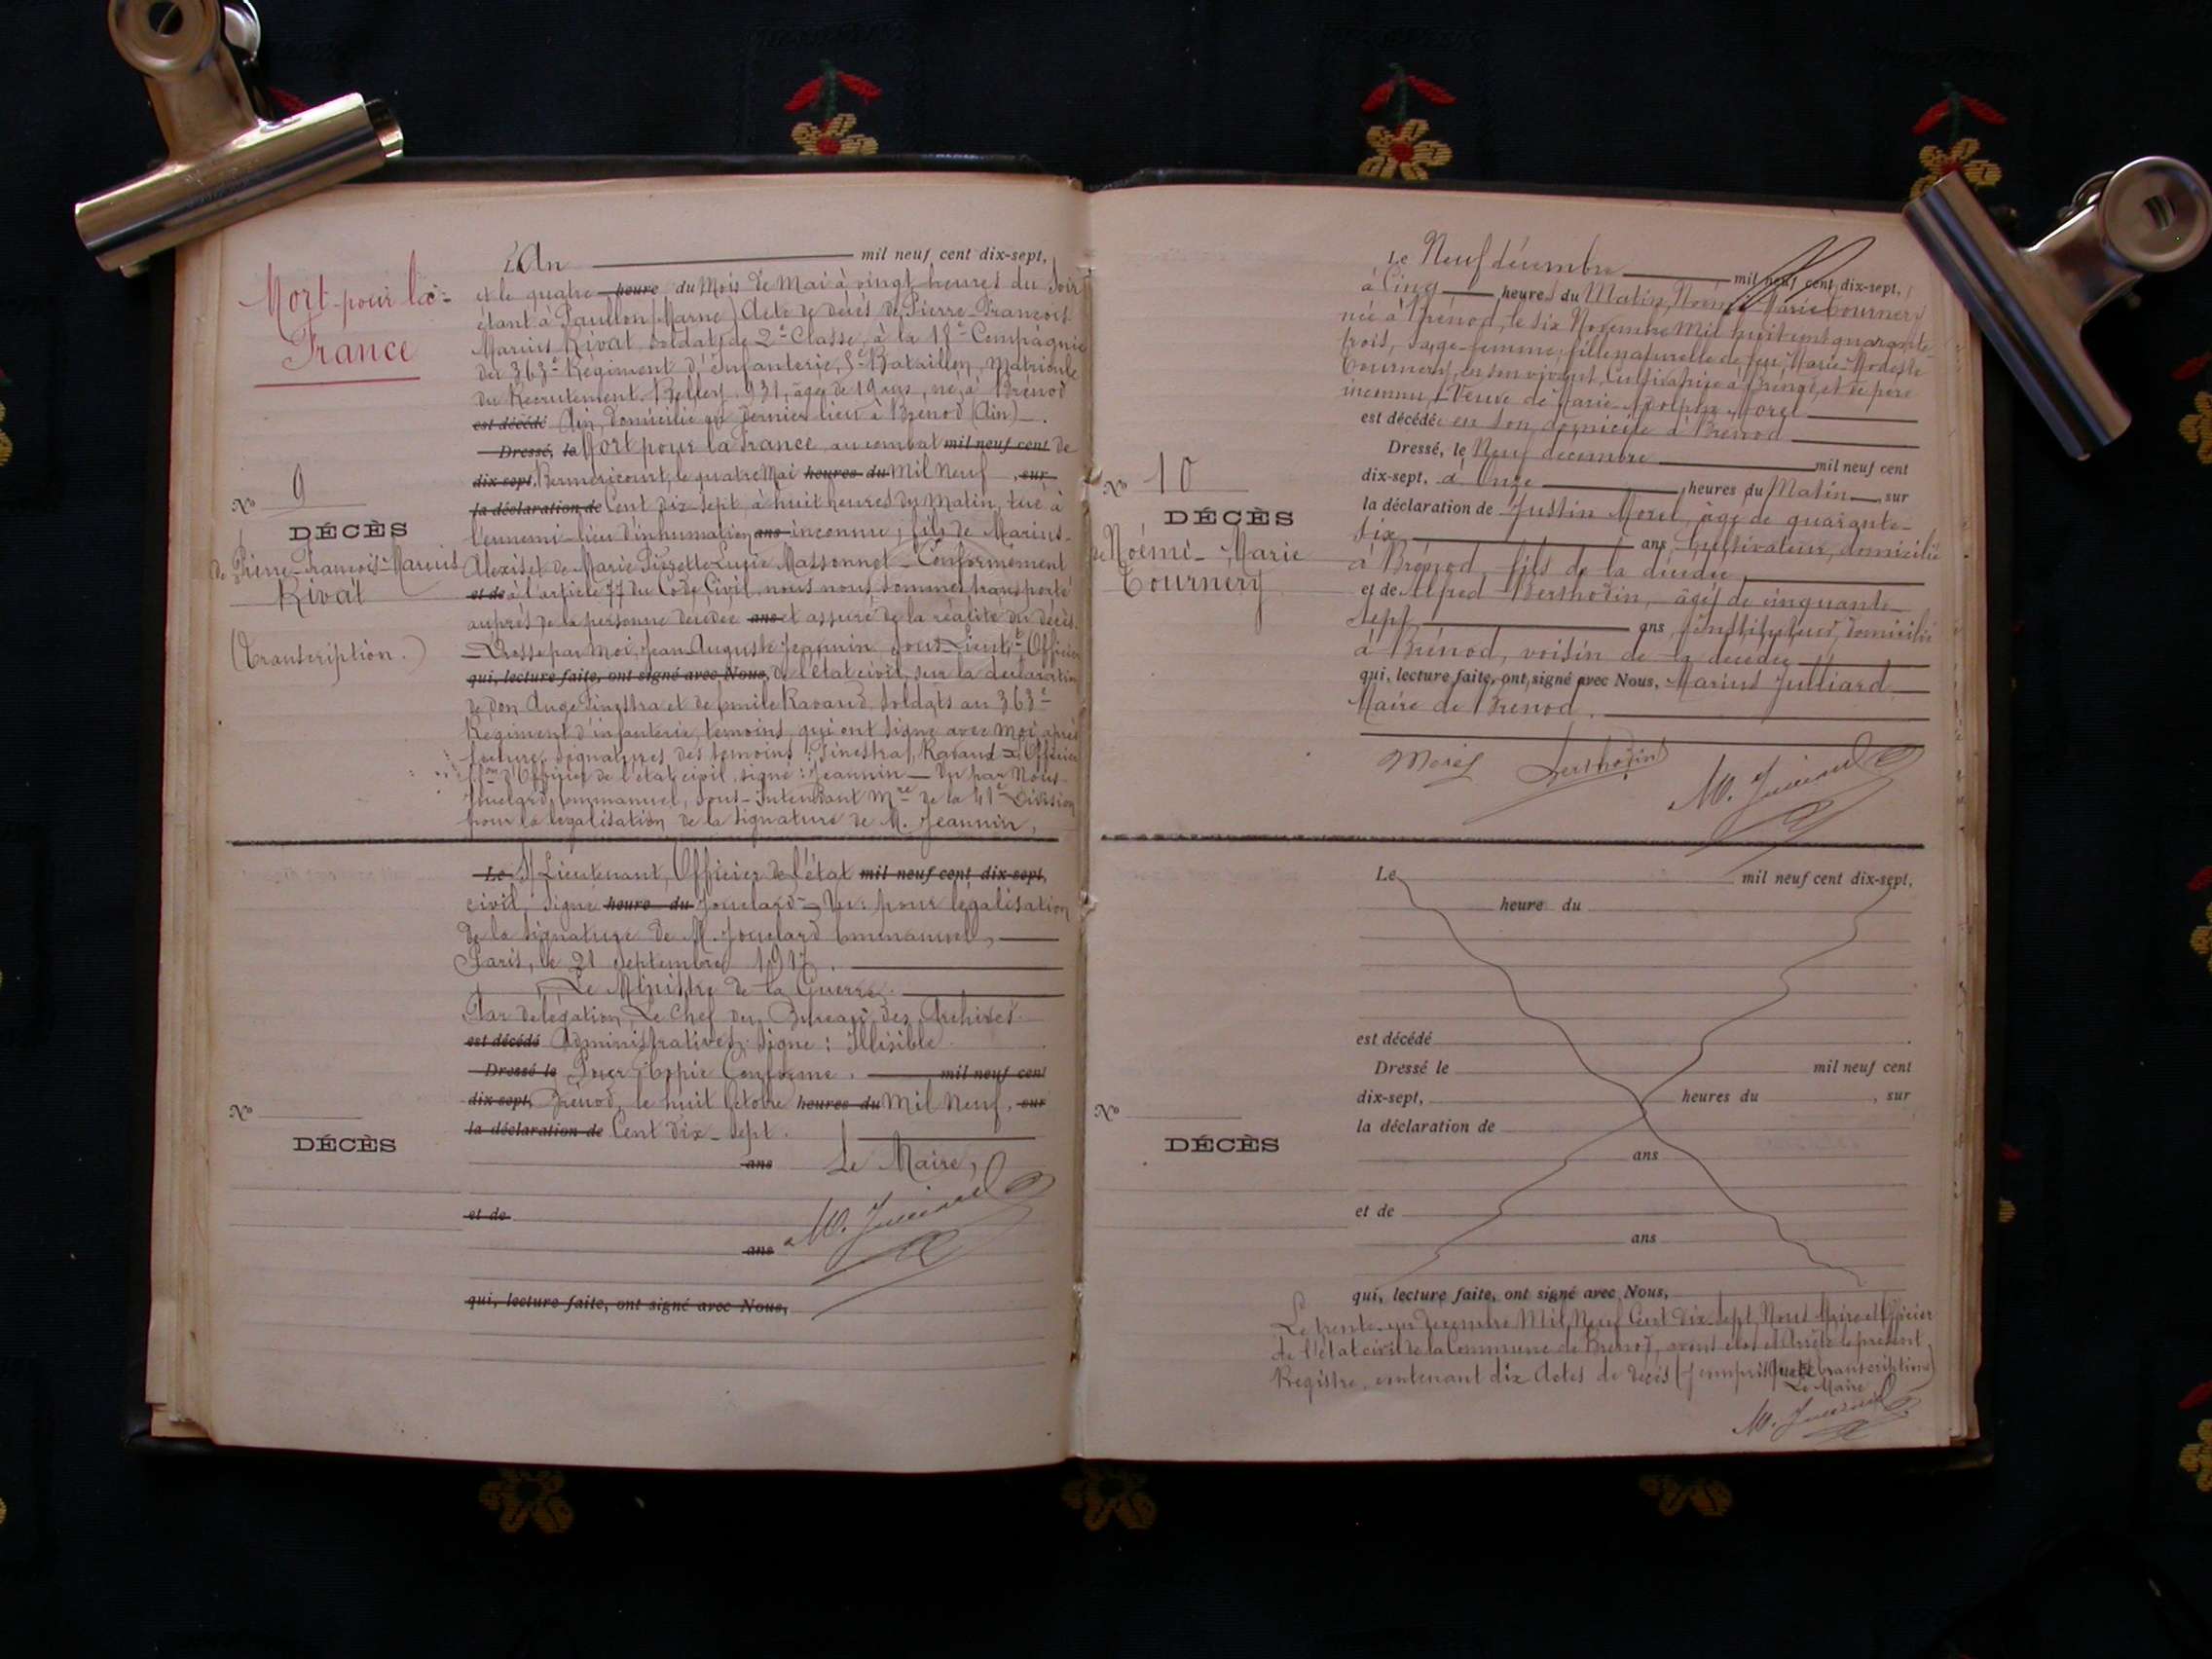 Mort pour la
France
N° 9
DÉCÈS
de Pierre-François-Marius
Rivat
(Transcription.)
L'An mil neuf cent dix-sept,
et le quatre heure du Mois de Mai à vingt heures du Soir
étant à (Marne) Acte de décès de Pierre François
Marius Rivat soldat de 2e Classe, à la 18e Compagnie
du 363e Régiment d'Infanterie, 5e Bataillon, Matricule
du Recrutement. Belley. 931, âgé de 19 ans, né à Brénod
est décédé Ain, domicilié en dernier lieu à Brénod (Ain).
Dressé, le Mort pour la France, au combat mil neuf cent de
dix-sept, Berméricourt, le quatre Mai heures du Mil Neuf, sur
la déclaration de Cent Dix-Sept, à huit heures du Matin, tué à
l'ennemi - lieu d'inhumation ans inconnu; fils de Marius-
Alexis et de Marie Lucie Massonnet - Conformément
et de à l'article 77 du Code Civil, nous nous sommes transporté
auprès de la personne décédée ans et assuré de la réalité du décès.
Dressé par moi, Jean Auguste Jeannin, Sous-Lieut., Officier
qui, lecture faite, ont signé avec Nous, de l'état civil, sur la déclaration
de Don Ange Pinestra et de Emile Ravaud, soldats au 363e
Régiment d'infanterie, témoins, qui ont signé avec moi, après
lecture. Signatures des témoins: Ravaud
d'Officier de l'état civil, signé: Jeannin - Vu par Nous
Jouclard, Emmanuel, Sous-Intendant Mre de la 41e Division
pour la légalisation de la signature de M. Jeannin,
Le S/Lieutenant, Officier de l'état mil neuf cent dix-sept,
civil, signé heure du Jouclard - Vu: pour légalisation
de la signature de M. Jouclard Emmanuel,
Paris, le 21 Septembre 1917.
Le Ministre de la Guerre.
Par délégation, Le Chef du Bureau des Archives
est décédé Administratives. Signé: Illisible
Dressé le Pour Copie Conforme. mil neuf cent
dix-sept, Brénod, le huit Octobre heures du Mil Neuf, sur
la déclaration de Cent Dix-Sept.
N°
DÉCÈS
ans Le Maire,
et de
ans
qui, lecture faite, ont signé avec Nous,
N° 10
DÉCÈS
de Noémi-Marie
Tournery
Le Neuf décembre mil neuf cent dix-sept,
à Cinq heures du Matin, Noémi Marie Tournery
née à Brénod, le six Novembre Mil huit cent quarante-
trois, sage-femme, fille naturelle de feu, Marie-Modeste
Tournery, en son vivant, Cultivatrice à et de père
inconnu. Veuve de Marie-Adolphe Morel
est décédée en son domicile à Brénod
Dressé, le Neuf décembre mil neuf cent
dix-sept, à Onze heures du Matin, sur
la déclaration de Justin Morel, âgé de quarante-
six ans, Cultivateur, domicilié
à Brénod, fils de la décédée,
et de Alfred Berthodin, âgé de cinquante-
sept ans, Instituteur, domicilié
à Brénod, voisin de la décédée
qui, lecture faite, ont signé avec Nous, Marius Julliard
Maire de Brénod.
Morel Berthodin M. Julliard
N°
DÉCÈS
Le mil neuf cent dix-sept,
heure du
est décédé
Dressé le mil neuf cent
dix-sept, heures du , sur
la déclaration de
ans
et de
ans
qui, lecture faite, ont signé avec Nous,
Le trente-un Décembre Mil Neuf Cent Dix-Sept, Nous Maire et Officier
de l'état civil de la Commune de Brénod, avons clos et Arrêté le présent
Registre, contenant dix Actes de décès (y compris transcriptions)
Le Maire
M. Julliard